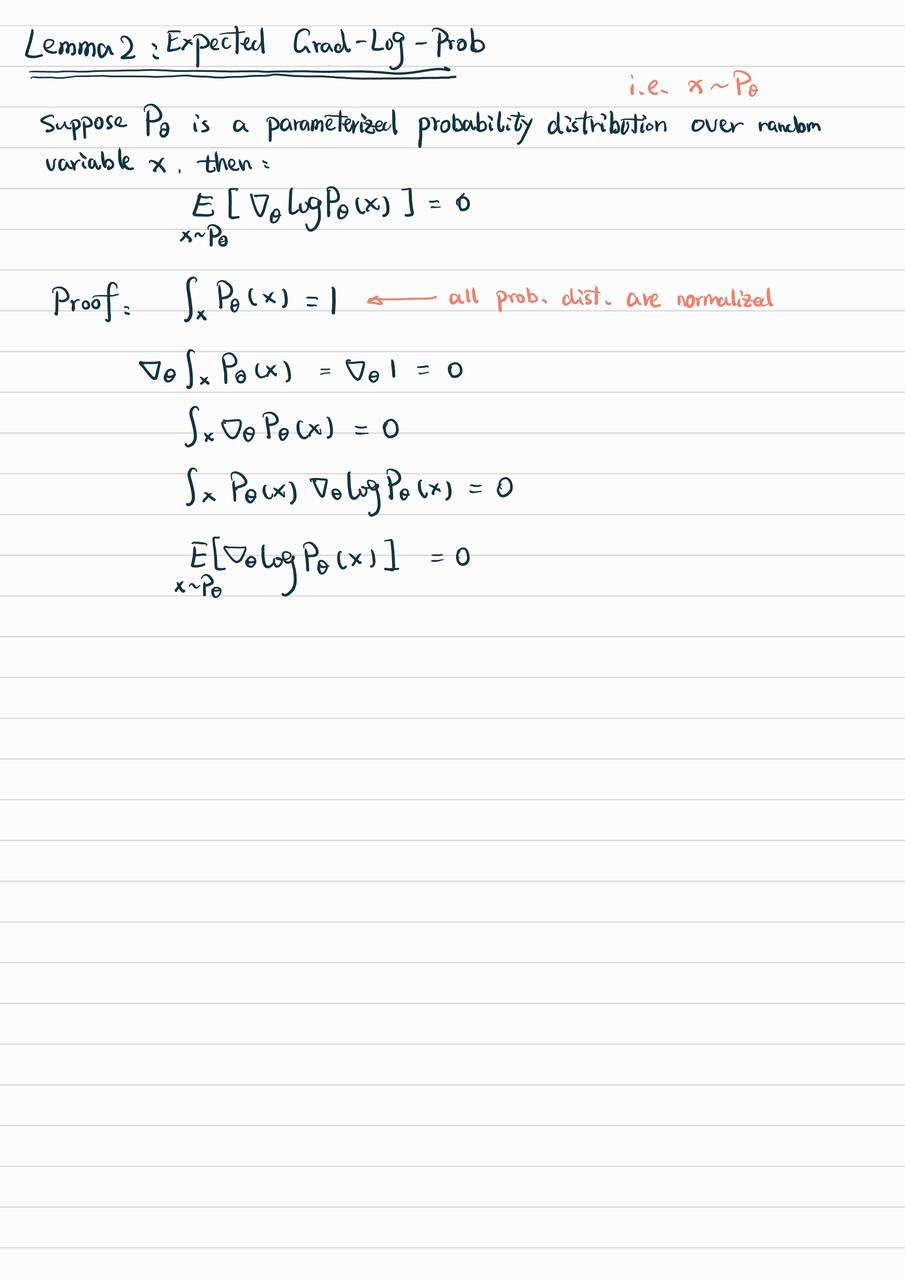 Lemma 2 : Expected Grad-Log-Prob
i.e. x ~ P_θ
Suppose P_θ is a parameterized probability distribution over random
variable x, then :
E_{x~P_θ} [ ∇_θ log P_θ (x) ] = 0
Proof : ∫_x P_θ (x) = 1 ← all prob. dist. are normalized
∇_θ ∫_x P_θ (x) = ∇_θ 1 = 0
∫_x ∇_θ P_θ (x) = 0
∫_x P_θ (x) ∇_θ log P_θ (x) = 0
E_{x~P_θ} [ ∇_θ log P_θ (x) ] = 0